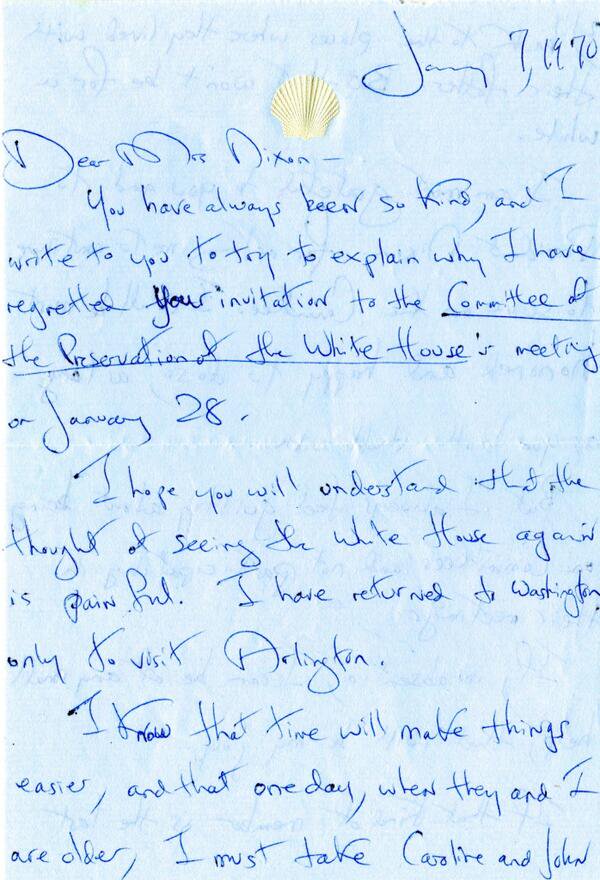 January 7, 1970
Dear Mrs Nixon —
You have always been so kind, and I
write to you to try to explain why I have
regretted your invitation to the Committee of
the Preservation of the White House's meeting
on January 28.
I hope you will understand that the
thought of seeing the White House again
is painful. I have returned to Washington
only to visit Arlington.
I know that time will make things
easier, and that one day, when they and I
are older, I must take Caroline and John